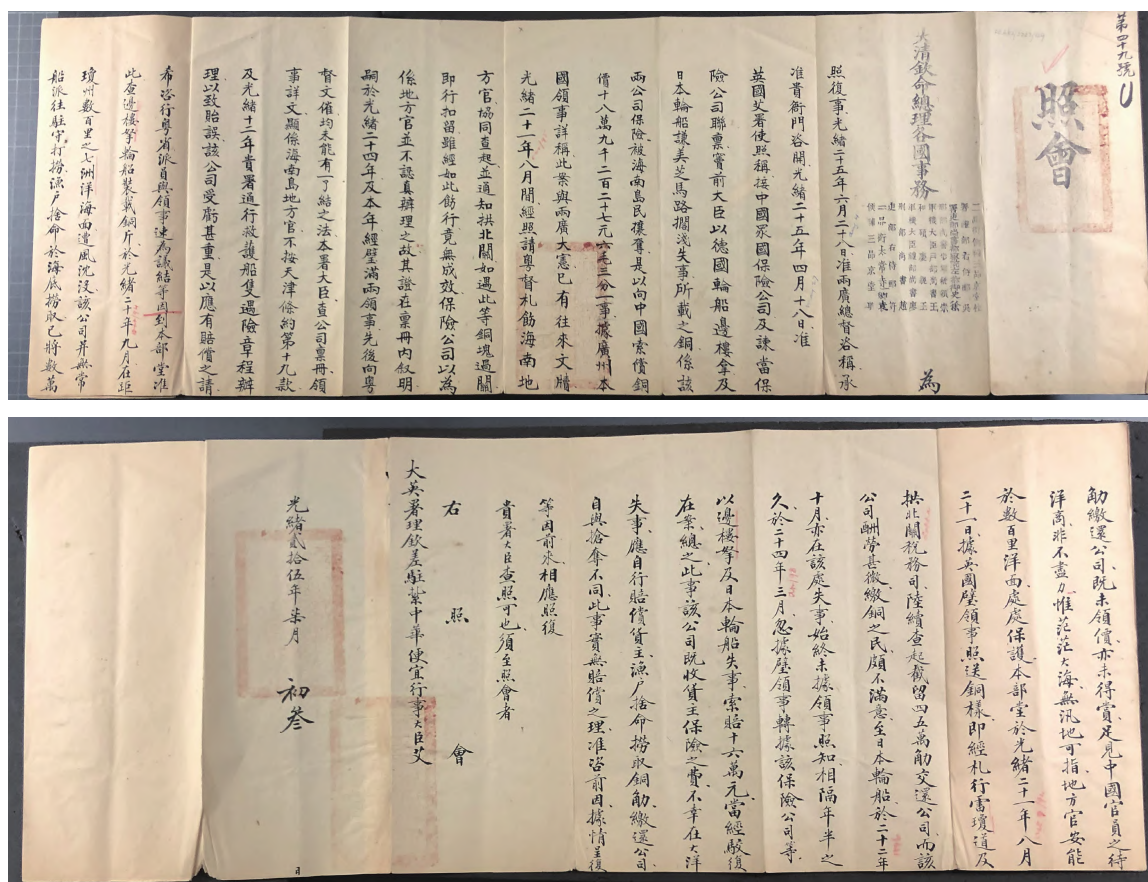 第四十九號
照會
大清欽命總理各國事務
為
照復事光緒二十五年六月二十八日准兩廣總督咨稱承
准貴衙門咨開光緒二十五年四月十八日准
英國艾署使照稱接中國眾國保險公司及諫當保
險公司聯稟竇前大臣以德國輪船邊樓拿及
日本輪船謙美芝馬路擱淺失事所載之銅係該
兩公司保險被海南島民攘奪是以向中國索償銅
價十八萬九千二百二十七元六毛三分一事據廣州本
國領事詳稱此案與兩廣大憲已有往來文牘
光緒二十一年八月間經照請粵督札飭海南地
方官協同查起並通知拱北關如遇此等銅塊過關
即行扣留雖經如此飭行竟無成效保險公司以為
係地方官並不認真辦理之故其證在稟冊內敘明
嗣於光緒二十四年及本年經璧滿兩領事先後向粵
督文催均未能有一了結之法本署大臣查公司稟冊領
事詳文顯係海南島地方官不按天津條約第十九款
及光緒十二年貴署通行救護船隻遇險章程辦
理以致貽誤該公司受虧甚重是以應有賠償之請
希咨行粵省派員與領事速為議結等因到本部堂准
此查邊樓拏輪船裝載銅斤於光緒二十年九月在距
瓊州數百里之七洲洋海面遭風沈沒該公司并無常
船派往駐守打撈漁戶捨命於海底撈取已將數萬
觔繳還公司既未領價亦未得賞足見中國官員之待
洋商非不盡力惟茫茫大海無汛地可指地方官安能
於數百里洋面處處保護本部堂於光緒二十一年八月
二十一日據英國璧領事照送銅樣即經札行雷瓊道及
拱北關稅務司陸續查起截留四五萬觔交還公司而該
公司酬勞甚微繳銅之民頗不滿意至日本輪船於二十二年
十月亦在該處失事始終未據領事照知相隔年半之
久於二十四年三月忽據璧領事轉據該保險公司等
以邊樓拏及日本輪船失事索賠十六萬元當經駁復
在案總之此事該公司既收貨主保險之費不幸在大洋
失事應自行賠償貨主漁戶捨命撈取銅觔繳還公司
自與搶奪不同此事實無賠償之理准咨前因據情呈復
等因前來相應照復
貴署大臣查照可也須至照會者
右照會
大英署理欽差駐紮中華便宜行事大臣艾
光緒貳拾伍年柒月初叁
日